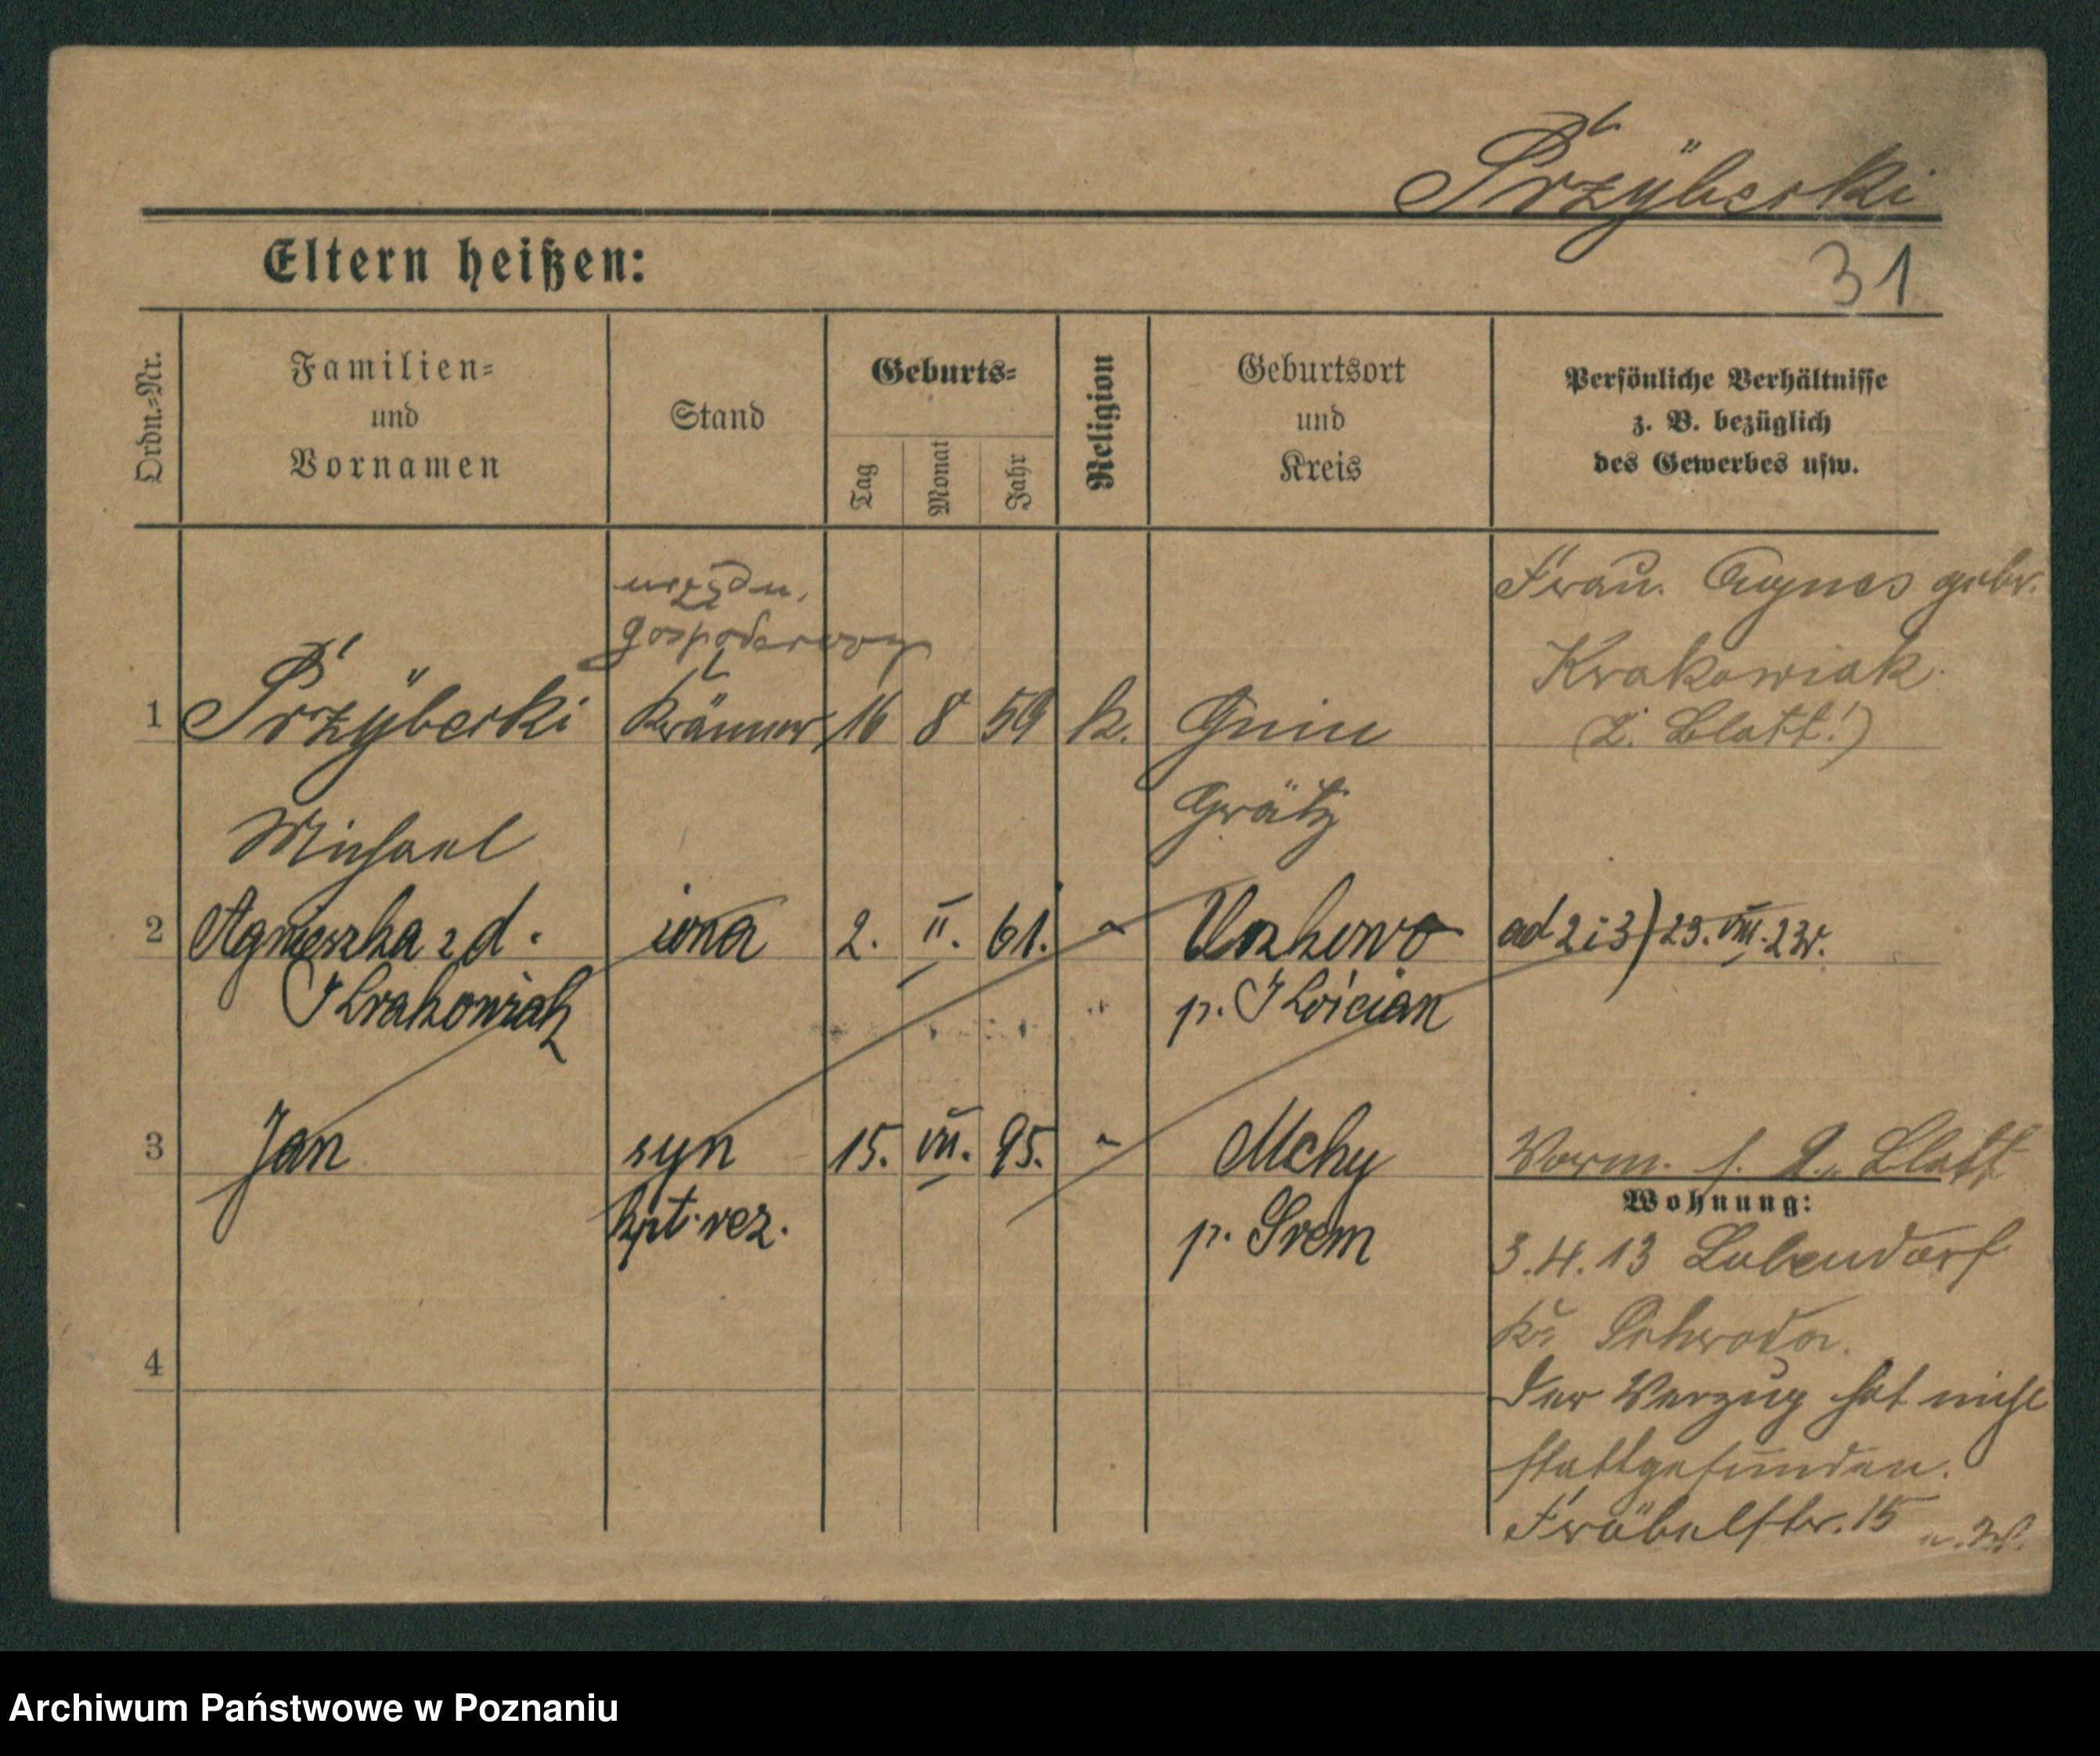 Przÿberski
Eltern heißen:
31
Ordn.-Nr.
Familien-
und
Vornamen
Stand
Geburts-
Tag
Monat
Jahr
Religion
Geburtsort
und
Kreis
Persönliche Verhältnisse
z. B. bezüglich
des Gewerbes usw.
urzędn.
gospodarczy
Frau. Agnes gebr.
Krakowiak.
1 Przÿberski Krämer 16 8 59 k. Gnin
(2. Blatt!)
Michael
Grätz
2 Agnieszka z d. żona 2. II. 61. " ad 2 i 3) 23. VIII. 23r.
Krakowiak
p. Kościan
3 Jan syn 15. VII. 95. " Mchy
2. Blatt
kpt. rez.
p. Śrem
Wohnung:
3.4.13 Lobendorf
Kr. Schroda.
4
Der Verzug hat nicht
stattgefunden.
Fröbelstr. 15
Archiwum Państwowe w Poznaniu